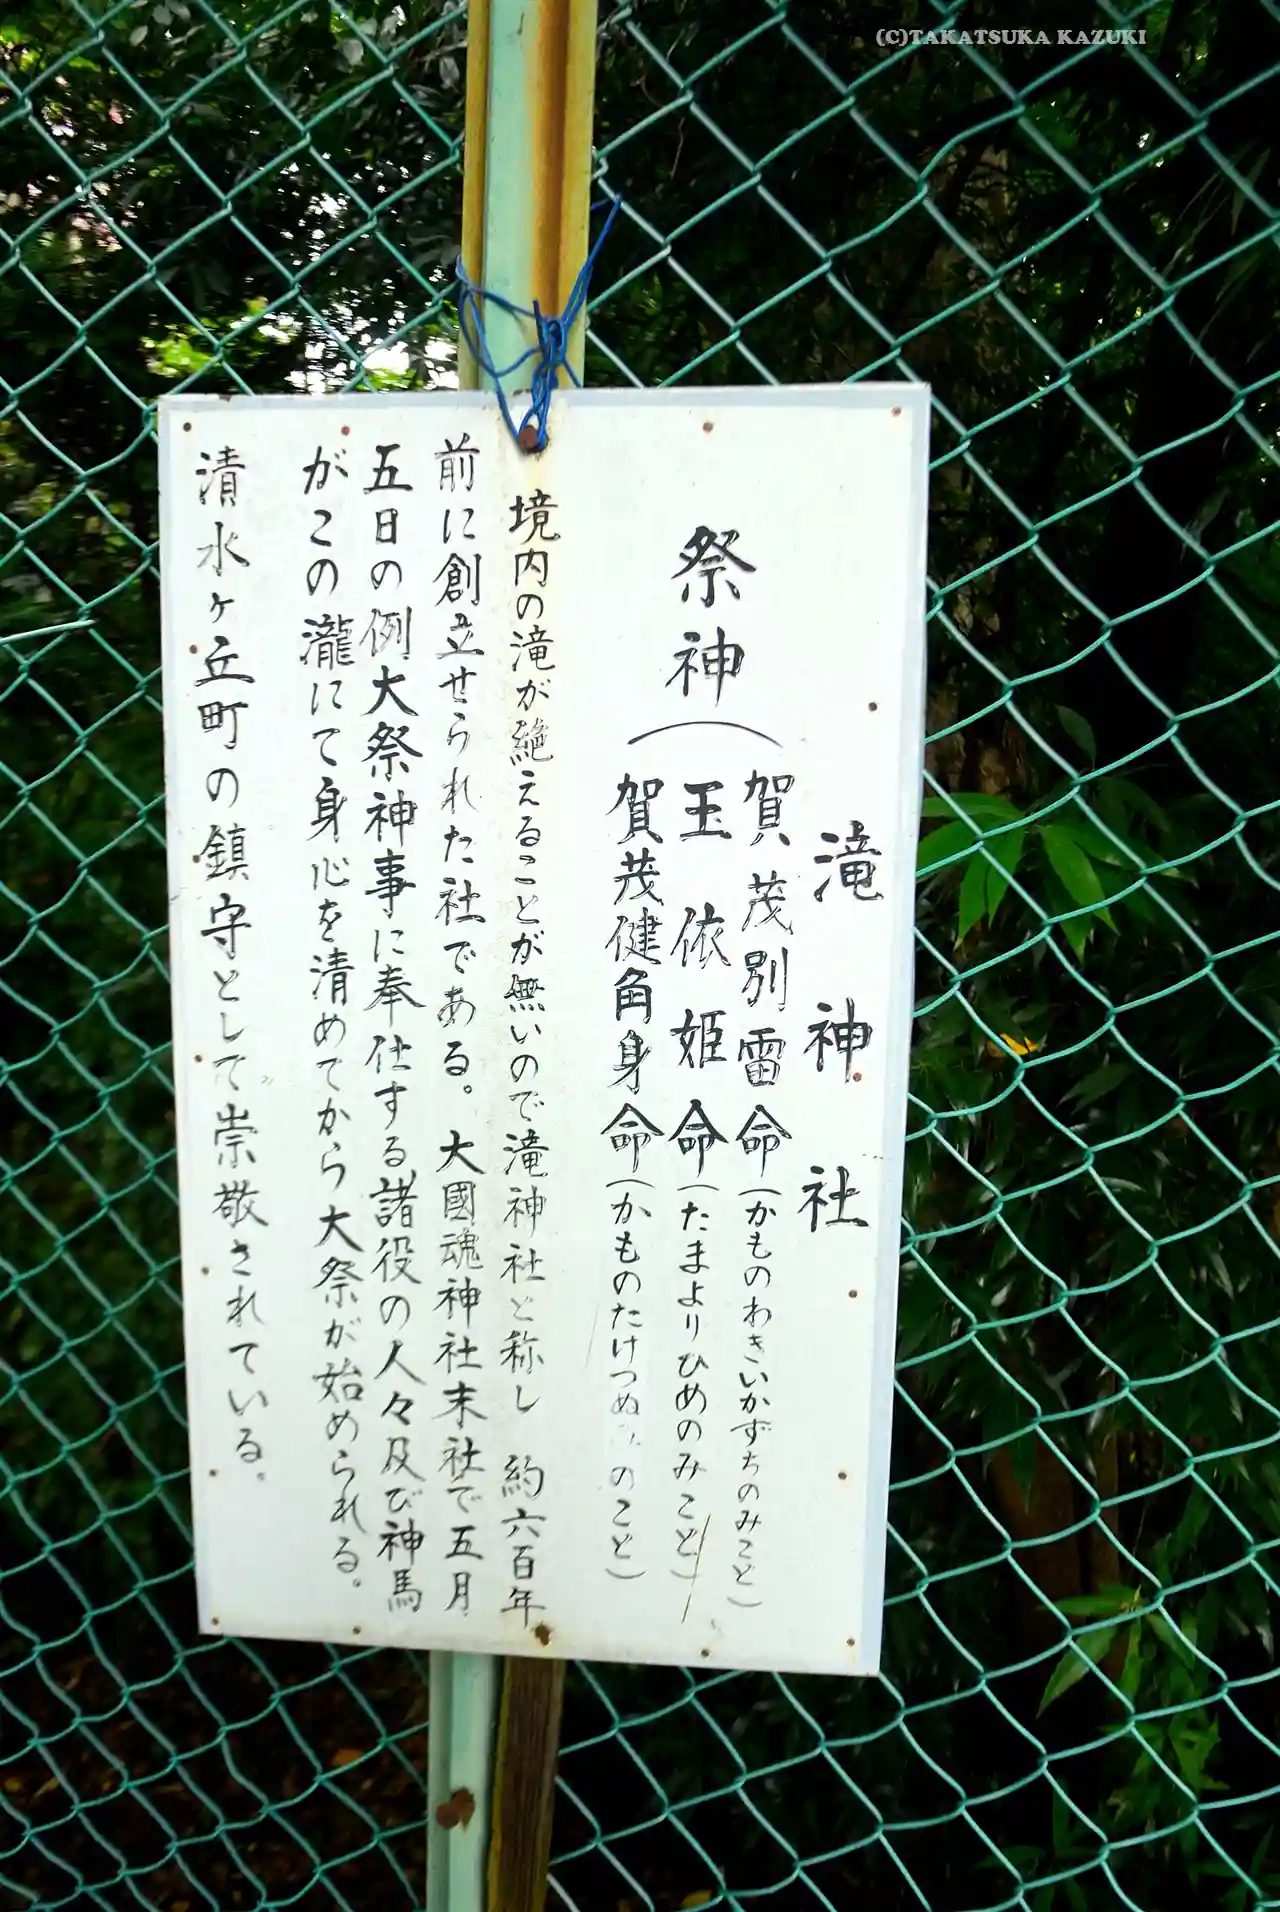 (C)TAKATSUKA KAZUKI
滝神社
祭神
賀茂別雷命(かものわきいかずちのみこと)
玉依姫命(たまよりひめのみこと)
賀茂健角身命(かものたけつぬ のこと)
境内の滝が絶えることが無いので滝神社と称し 約六百年
前に創立せられた社である。大國魂神社末社で五月
五日の例大祭神事に奉仕する諸役の人々及び神馬
がこの瀧にて身心を清めてから大祭が始められる。
清水ヶ丘町の鎮守として崇敬されている。